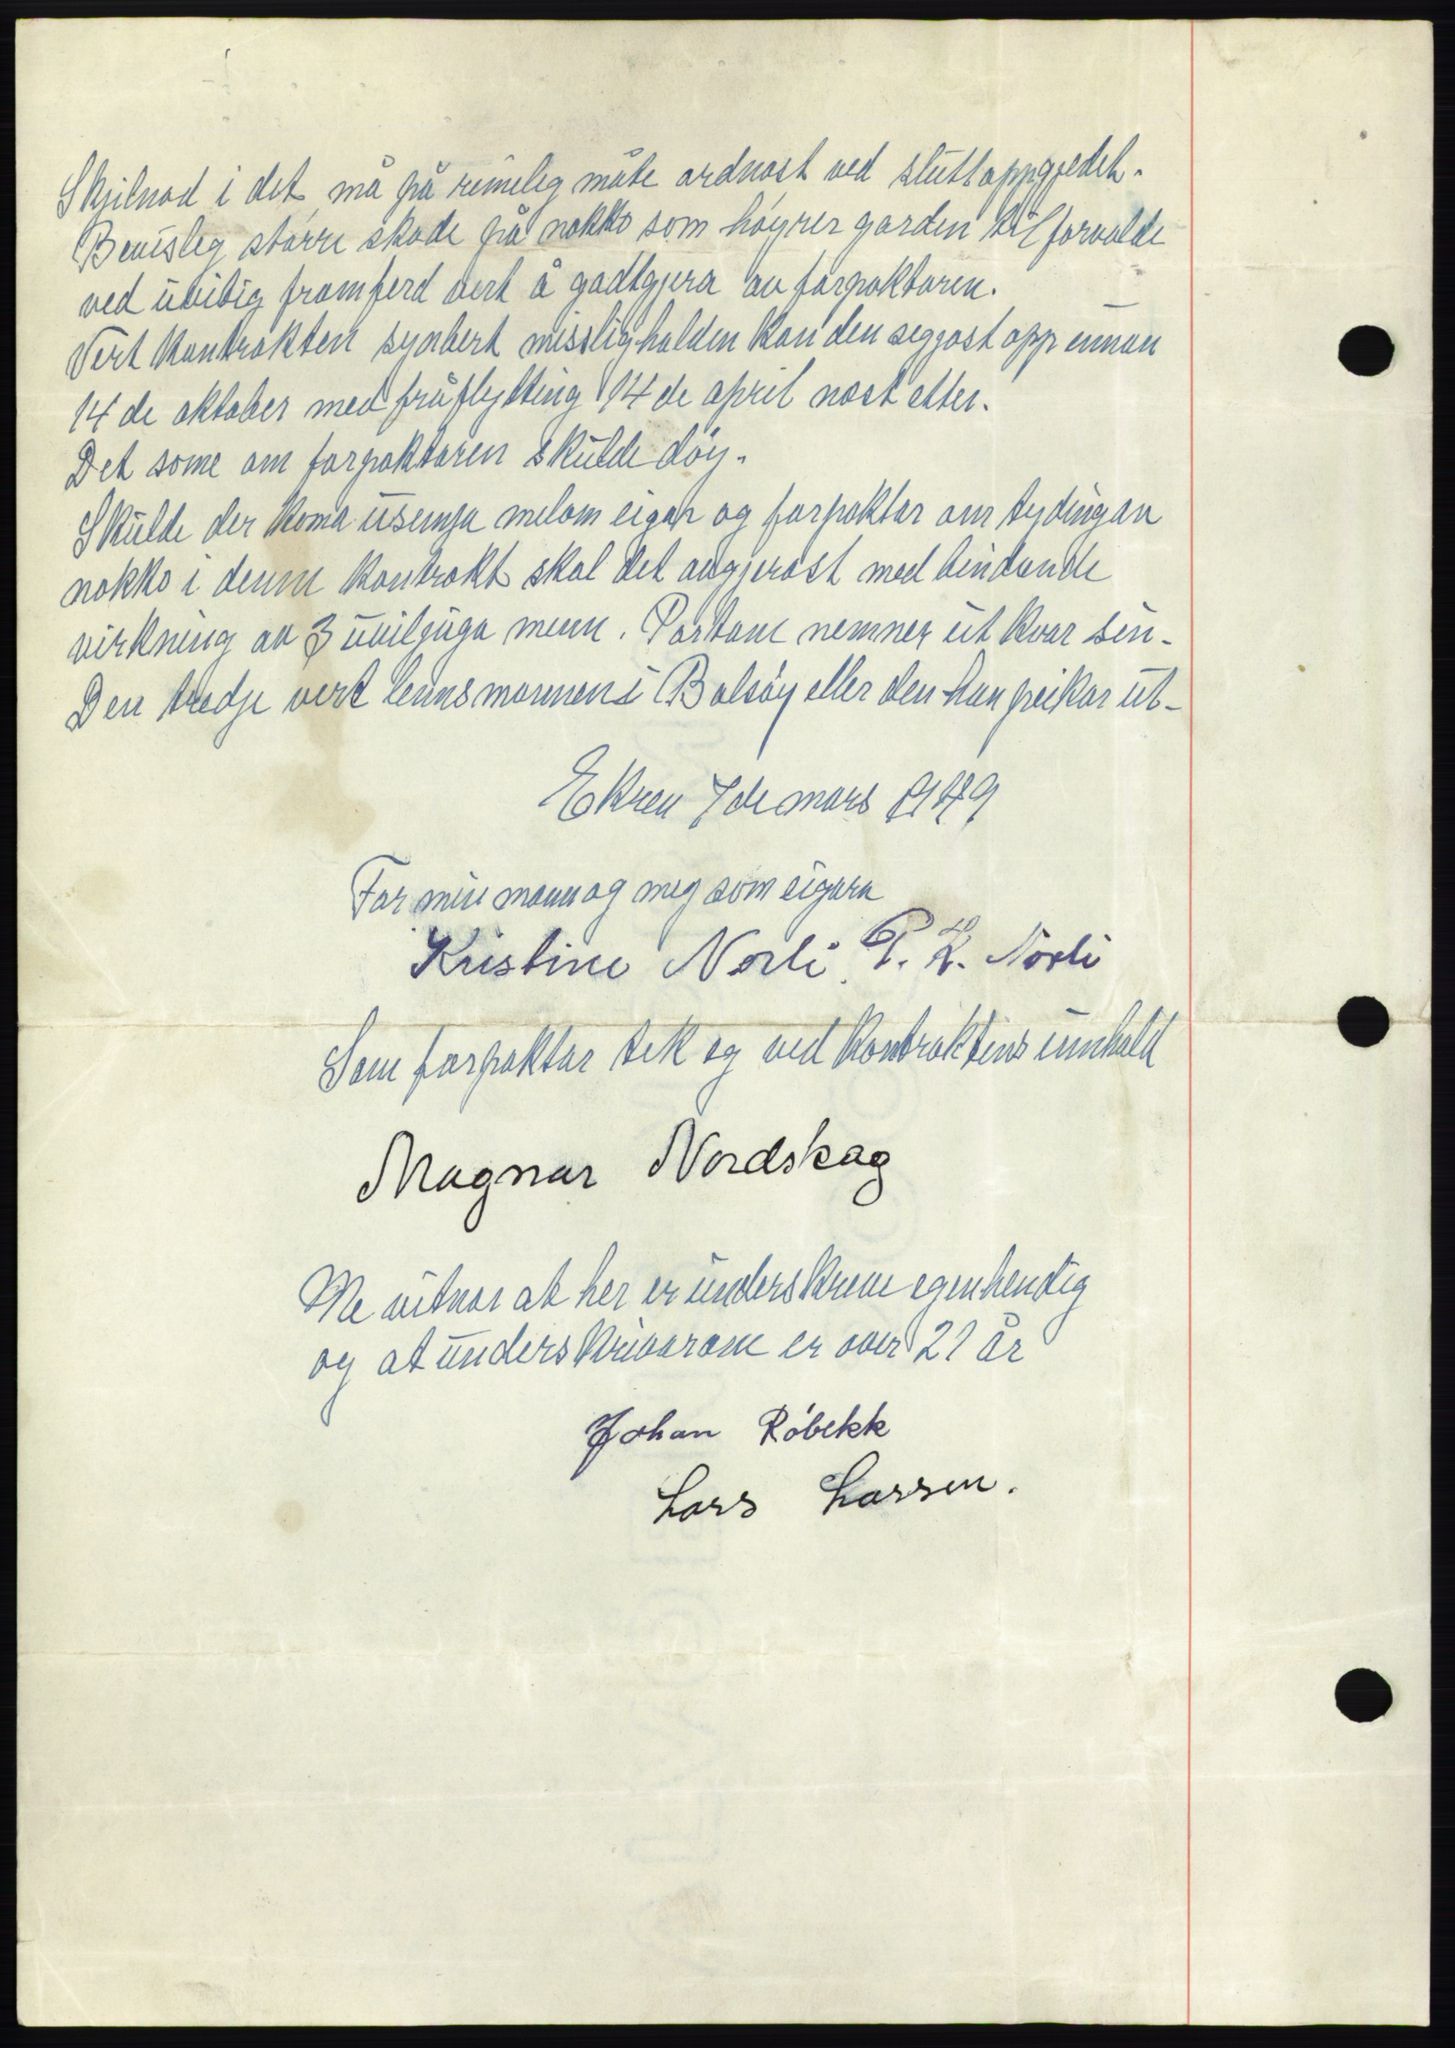 Skjilnad i det må på rimelig måte ordnast ved sluttoppgjedet.
Bevisleg større skade på nokko som høyrer garden til forvolde
ved uvitig framferd vert å godtgjera av forpaktaren.
Vert kontrakten synbert missligholden kan den seggast opp innan
14 de oktober med fråflytting 14 de april nest etter.
Det same om forpaktaren skulde døy.
Skulde der koma usemja melom eigar og forpaktar om tydingan
nokko i denne kontrakt skal det avgjerast med bindande
virkning av 3 uviljuga menn. Partane nemner ut kvar sin-
Den tredje vert lennsmannen i Bolsøy eller den han peikar ut-
Ekren 7 de mars 1949
For min mann og meg som eigara
Kristine Norli P. L. Norli
Som forpaktar tek eg ved kontraktens innhald
Magnar Nordskag
Me vitnar at her er underskreve egenhendig
og at underskrivarane er over 21 år
Johan Røbekk
Lars Larsen.